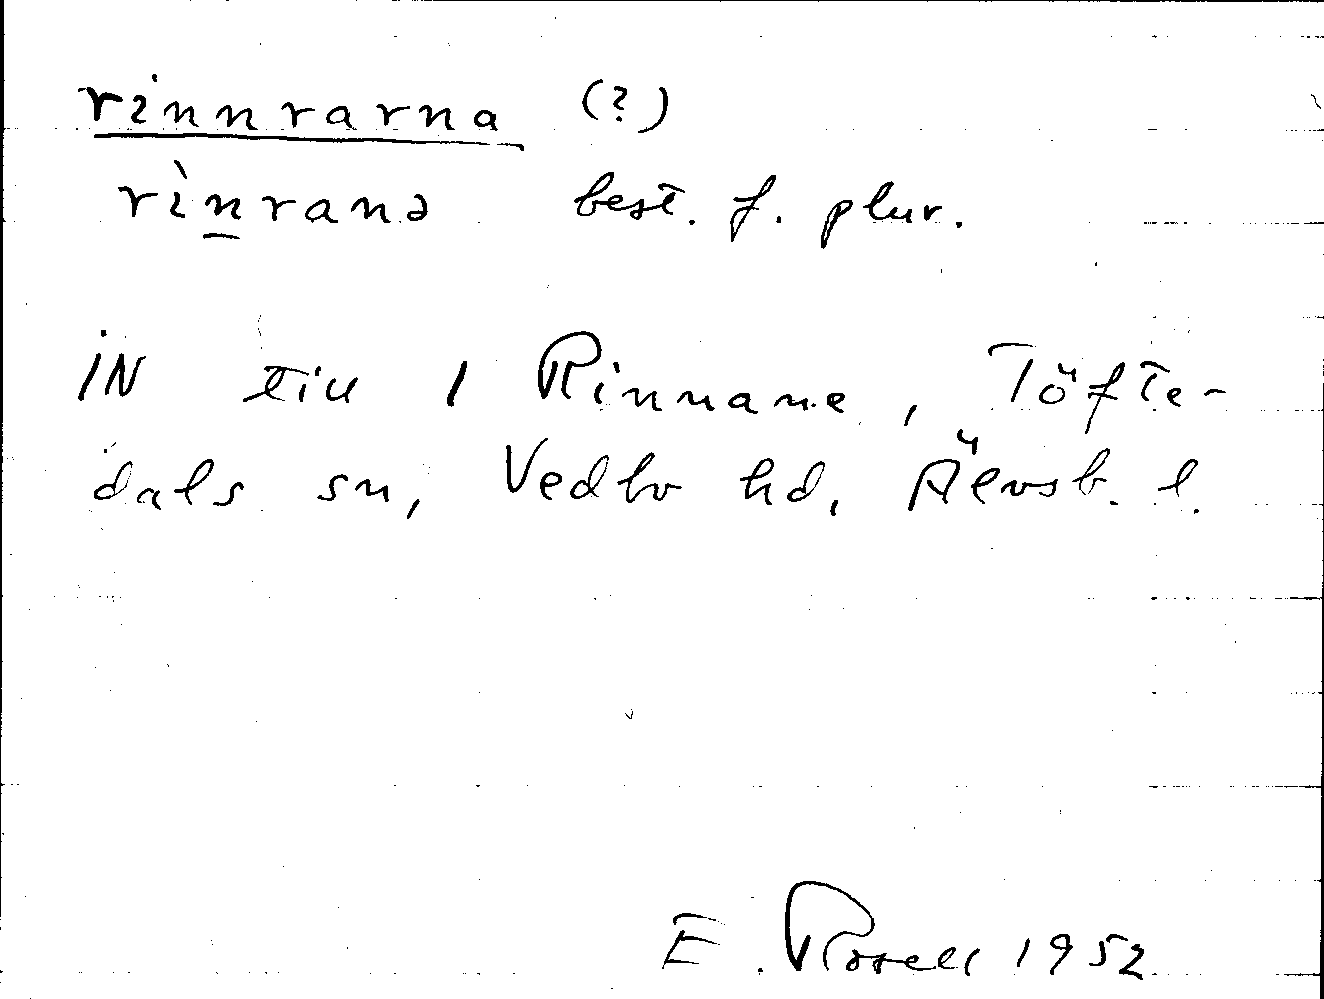 rinnrarna (?)
rìn̲ranə best. f. plur.
IN till 1 Rinnane, Töfte-
dals sn, Vedbo hd, Älvsb. l.
E. Rosell 1952